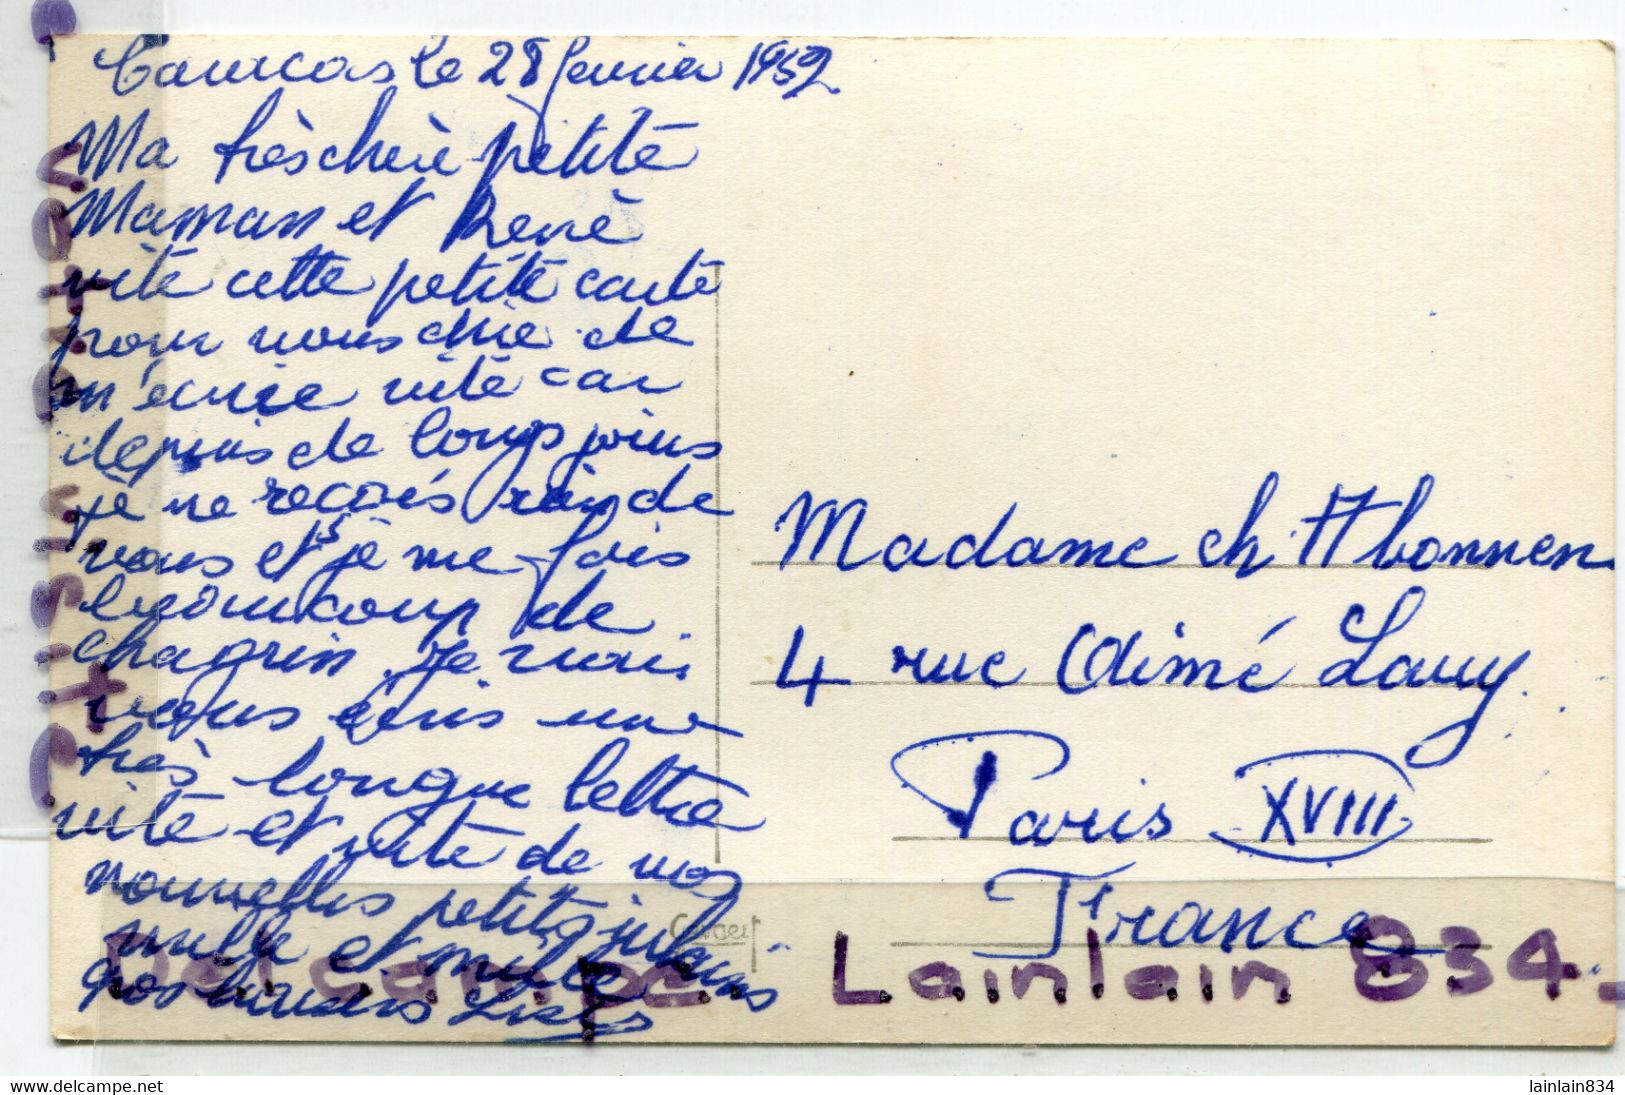 Caracas le 28 fevrier 1952
Ma très chère petite
Maman et René
vite cette petite carte
pour vous dire de
m'écrire vite car
depuis de longs jours
je ne recois rien de
vous et je me fais
beaucoup de
chagrin. Je vais
vous écris une
très longue lettre
vite et vite de vos
nouvelles petits
mille et mille
gros baisers
Madame ch Abonnen
4 rue Aimé Lavy
Paris XVIII
France
Delcampe Lainlain 834
lainlain834